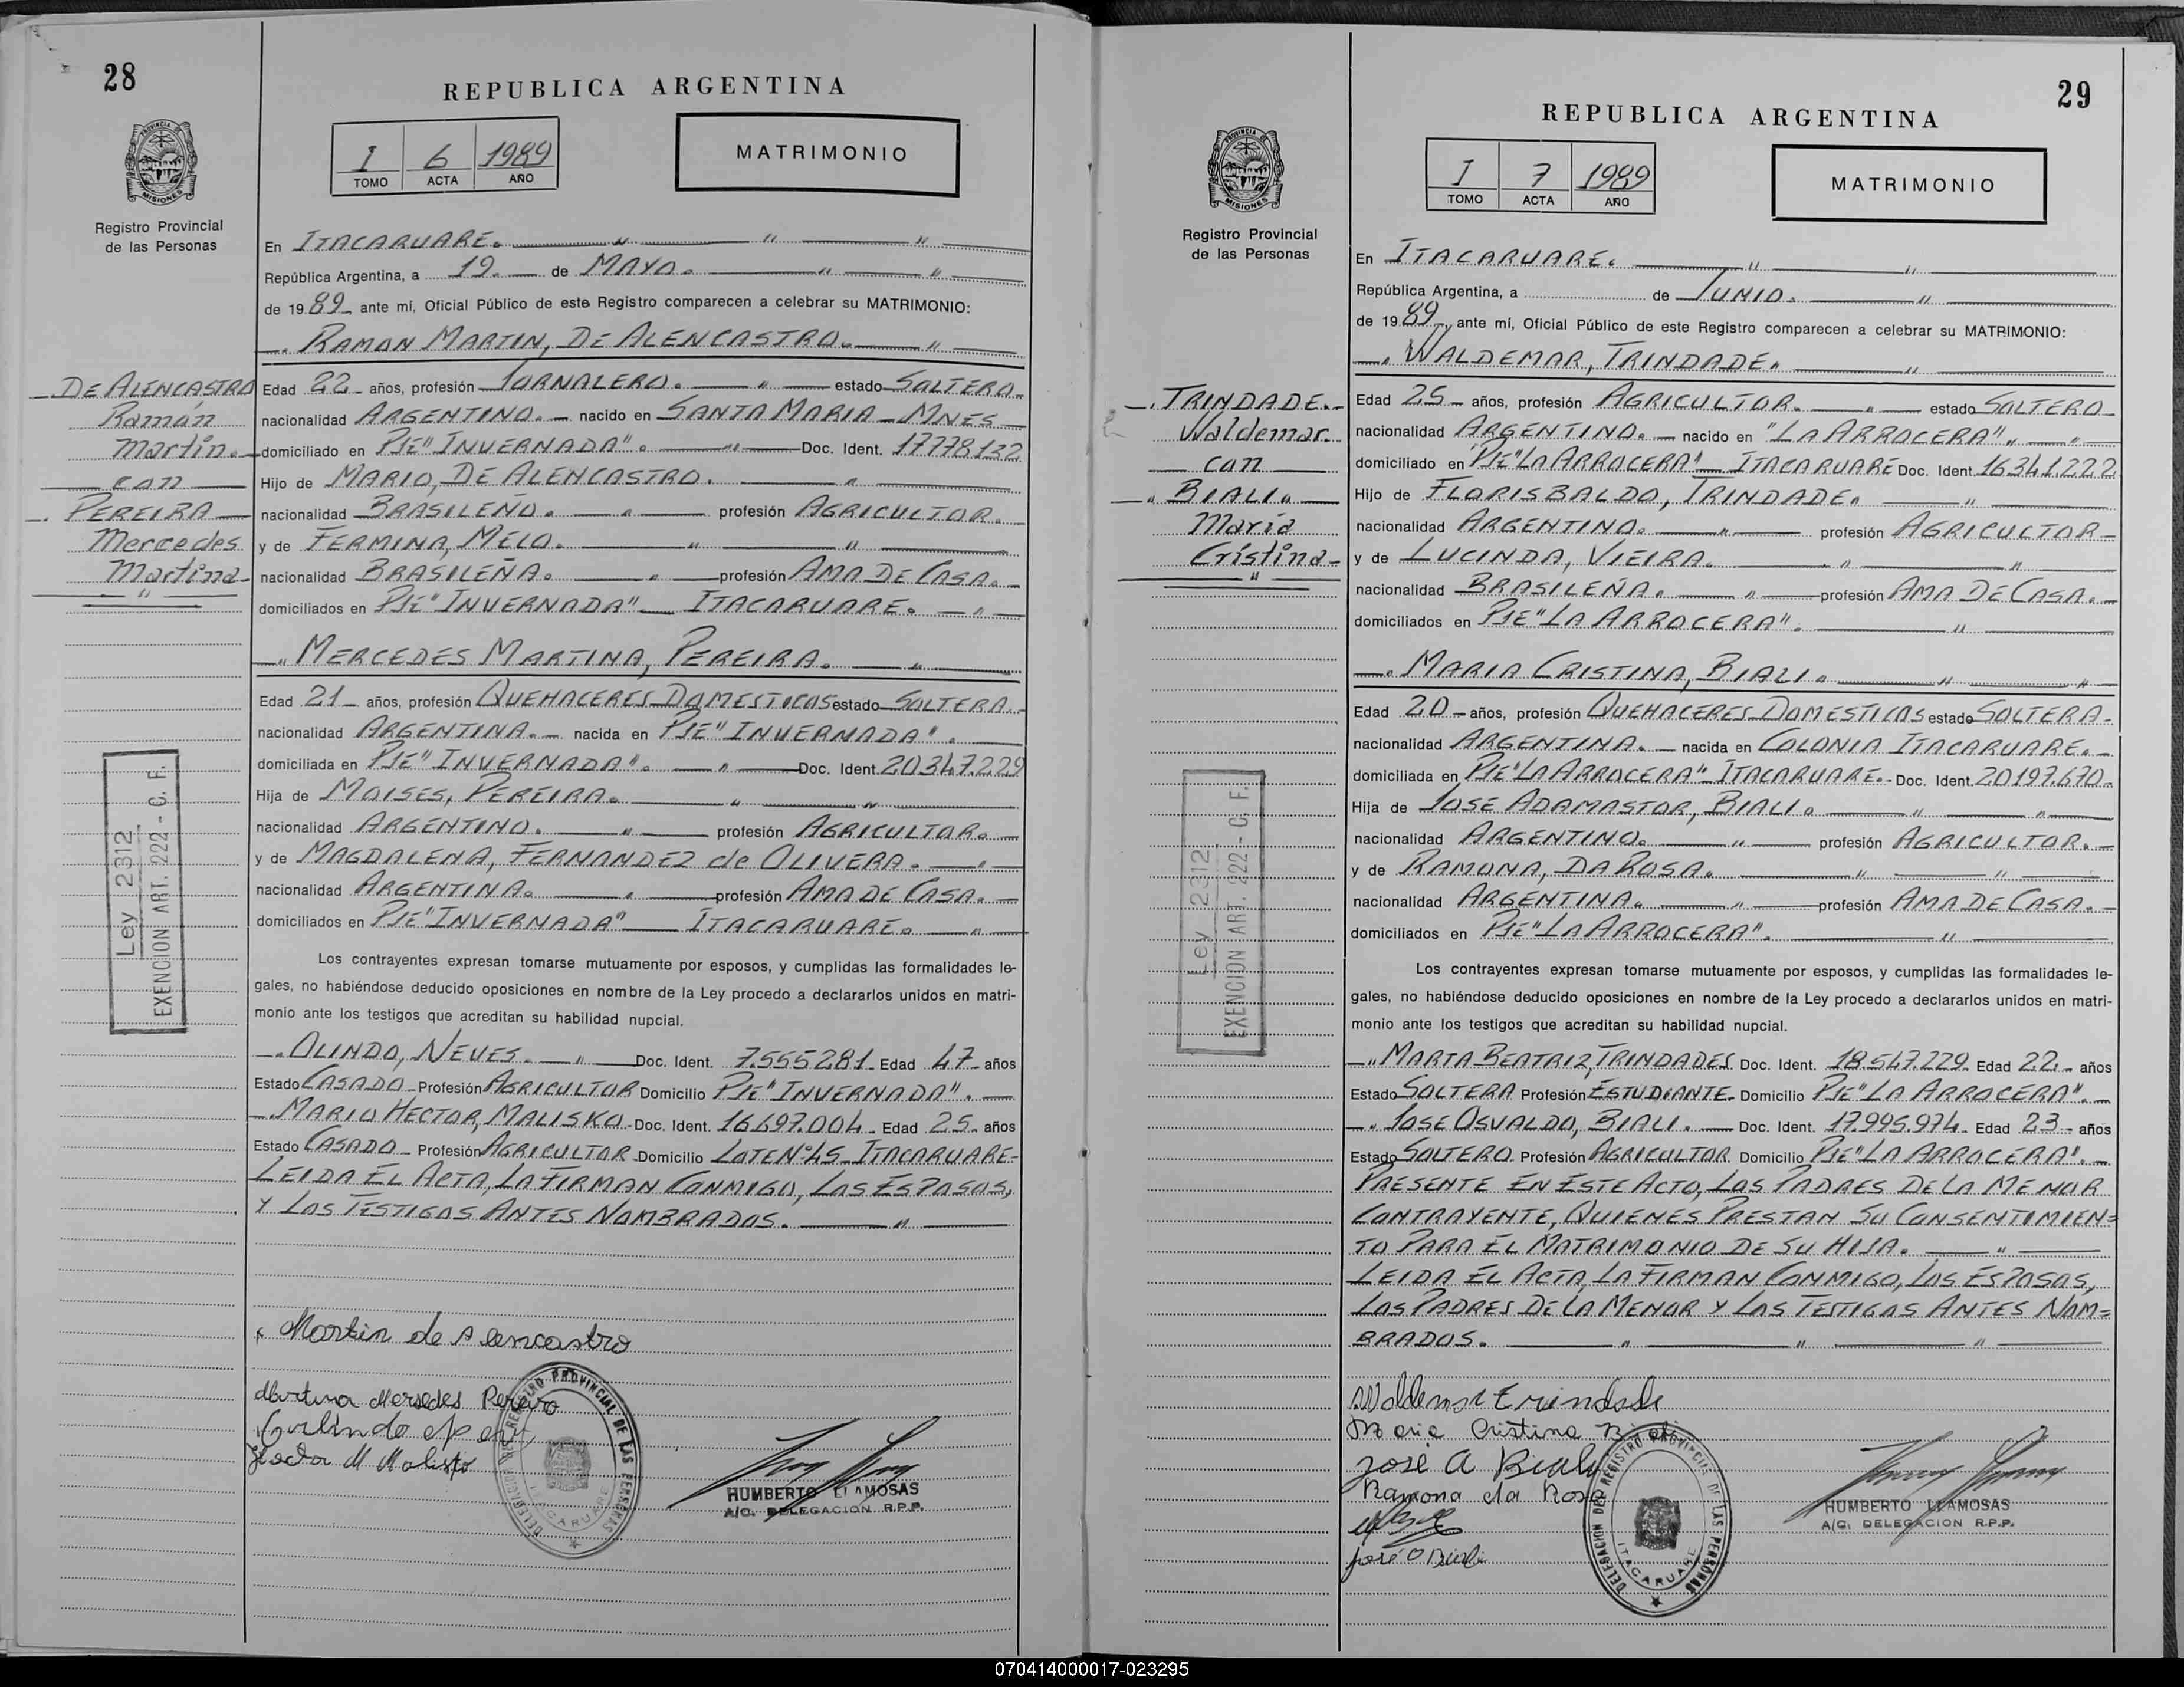 28
REPUBLICA ARGENTINA
PROVINCIA DE MISIONES
I 6 1989
TOMO ACTA AÑO
MATRIMONIO
Registro Provincial
de las Personas
En ITACARUARE. " " "
República Argentina, a 19. de MAYO. " "
de 1989 ante mí, Oficial Público de este Registro comparecen a celebrar su MATRIMONIO:
RAMON MARTIN, DE ALENCASTRO. "
DE ALENCASTRO
Ramón
Martin.
con
PEREIRA
Mercedes
Martina
"
Edad 22 años, profesión JORNALERO. " estado SOLTERO.
nacionalidad ARGENTINO. nacido en SANTA MARIA - MNES
domiciliado en PJE "INVERNADA". " Doc. Ident. 17778132
Hijo de MARIO, DE ALENCASTRO. "
nacionalidad BRASILEÑO. " profesión AGRICULTOR.
y de FERMINA, MELO. " "
nacionalidad BRASILEÑA. " profesión AMA DE CASA.
domiciliados en PJE "INVERNADA" ITACARUARE. "
MERCEDES MARTINA, PEREIRA. "
Edad 21 años, profesión QUEHACERES DOMESTICOS estado SOLTERA.
nacionalidad ARGENTINA. nacida en PJE "INVERNADA".
domiciliada en PJE "INVERNADA". " Doc. Ident. 20347.229
Hija de MOISES, PEREIRA. " "
nacionalidad ARGENTINO. " profesión AGRICULTOR.
y de MAGDALENA, FERNANDEZ de OLIVERA. "
nacionalidad ARGENTINA. " profesión AMA DE CASA.
domiciliados en PJE "INVERNADA" ITACARUARE. "
Ley 2312
EXENCION ART. 222 - C. F.
Los contrayentes expresan tomarse mutuamente por esposos, y cumplidas las formalidades le-
gales, no habiéndose deducido oposiciones en nombre de la Ley procedo a declararlos unidos en matri-
monio ante los testigos que acreditan su habilidad nupcial.
OLINDO, NEVES. " Doc. Ident. 7.555281 Edad 47 años
Estado CASADO Profesión AGRICULTOR Domicilio PJE "INVERNADA".
MARIO HECTOR, MALISKO Doc. Ident. 16697.004 Edad 25 años
Estado CASADO Profesión AGRICULTOR Domicilio LOTE Nº45 ITACARUARE
LEIDA EL ACTA, LA FIRMAN CONMIGO, LOS ESPOSOS,
Y LOS TESTIGOS ANTES NOMBRADOS. "
Martin de Alencastro
Martina Mersedes Pereiro
Malisko
DELEGACION DEL REGISTRO PROVINCIAL DE LAS PERSONAS
ITACARUARE
HUMBERTO LLAMOSAS
A/C. DELEGACION R.P.P.
29
REPUBLICA ARGENTINA
PROVINCIA DE MISIONES
I 7 1989
TOMO ACTA AÑO
MATRIMONIO
Registro Provincial
de las Personas
En ITACARUARE. " "
República Argentina, a de JUNIO. "
de 1989, ante mí, Oficial Público de este Registro comparecen a celebrar su MATRIMONIO:
WALDEMAR, TRINDADE. "
TRINDADE.
Waldemar.
con
BIALI.
María
Cristina
"
Edad 25 años, profesión AGRICULTOR. " estado SOLTERO
nacionalidad ARGENTINO. nacido en "LA ARROCERA". "
domiciliado en PJE "LA ARROCERA" ITACARUARE Doc. Ident. 16.341.222
Hijo de FLORISBALDO, TRINDADE. "
nacionalidad ARGENTINO. " profesión AGRICULTOR
y de LUCINDA, VIEIRA. " "
nacionalidad BRASILEÑA. " profesión AMA DE CASA.
domiciliados en PJE "LA ARROCERA". "
MARIA CRISTINA, BIALI. " "
Edad 20 años, profesión QUEHACERES DOMESTICOS estado SOLTERA.
nacionalidad ARGENTINA. nacida en COLONIA ITACARUARE.
domiciliada en PJE "LA ARROCERA" ITACARUARE. Doc. Ident. 20197.670
Hija de JOSE ADAMASTOR, BIALI. " "
nacionalidad ARGENTINO. " profesión AGRICULTOR.
y de RAMONA, DA ROSA. " "
nacionalidad ARGENTINA. " profesión AMA DE CASA.
domiciliados en PJE "LA ARROCERA". "
Ley 2312
EXENCION ART. 222 - C. F.
Los contrayentes expresan tomarse mutuamente por esposos, y cumplidas las formalidades le-
gales, no habiéndose deducido oposiciones en nombre de la Ley procedo a declararlos unidos en matri-
monio ante los testigos que acreditan su habilidad nupcial.
MARTA BEATRIZ, TRINDADES Doc. Ident. 18.547.229 Edad 22 años
Estado SOLTERA Profesión ESTUDIANTE Domicilio PJE "LA ARROCERA".
JOSE OSVALDO, BIALI. Doc. Ident. 17.995.974 Edad 23 años
Estado SOLTERO Profesión AGRICULTOR Domicilio PJE "LA ARROCERA".
PRESENTE EN ESTE ACTO, LOS PADRES DE LA MENOR
CONTRAYENTE, QUIENES PRESTAN SU CONSENTIMIEN=
TO PARA EL MATRIMONIO DE SU HIJA. "
LEIDA EL ACTA, LA FIRMAN CONMIGO, LOS ESPOSOS,
LOS PADRES DE LA MENOR Y LOS TESTIGOS ANTES NOM=
BRADOS. " " "
Waldemar Trindade
Maria Cristina Biali
José A Bialy
Ramona da Rosa
José O Biali
DELEGACION DEL REGISTRO PROVINCIAL DE LAS PERSONAS
ITACARUARE
HUMBERTO LLAMOSAS
A/C. DELEGACION R.P.P.
070414000017-023295